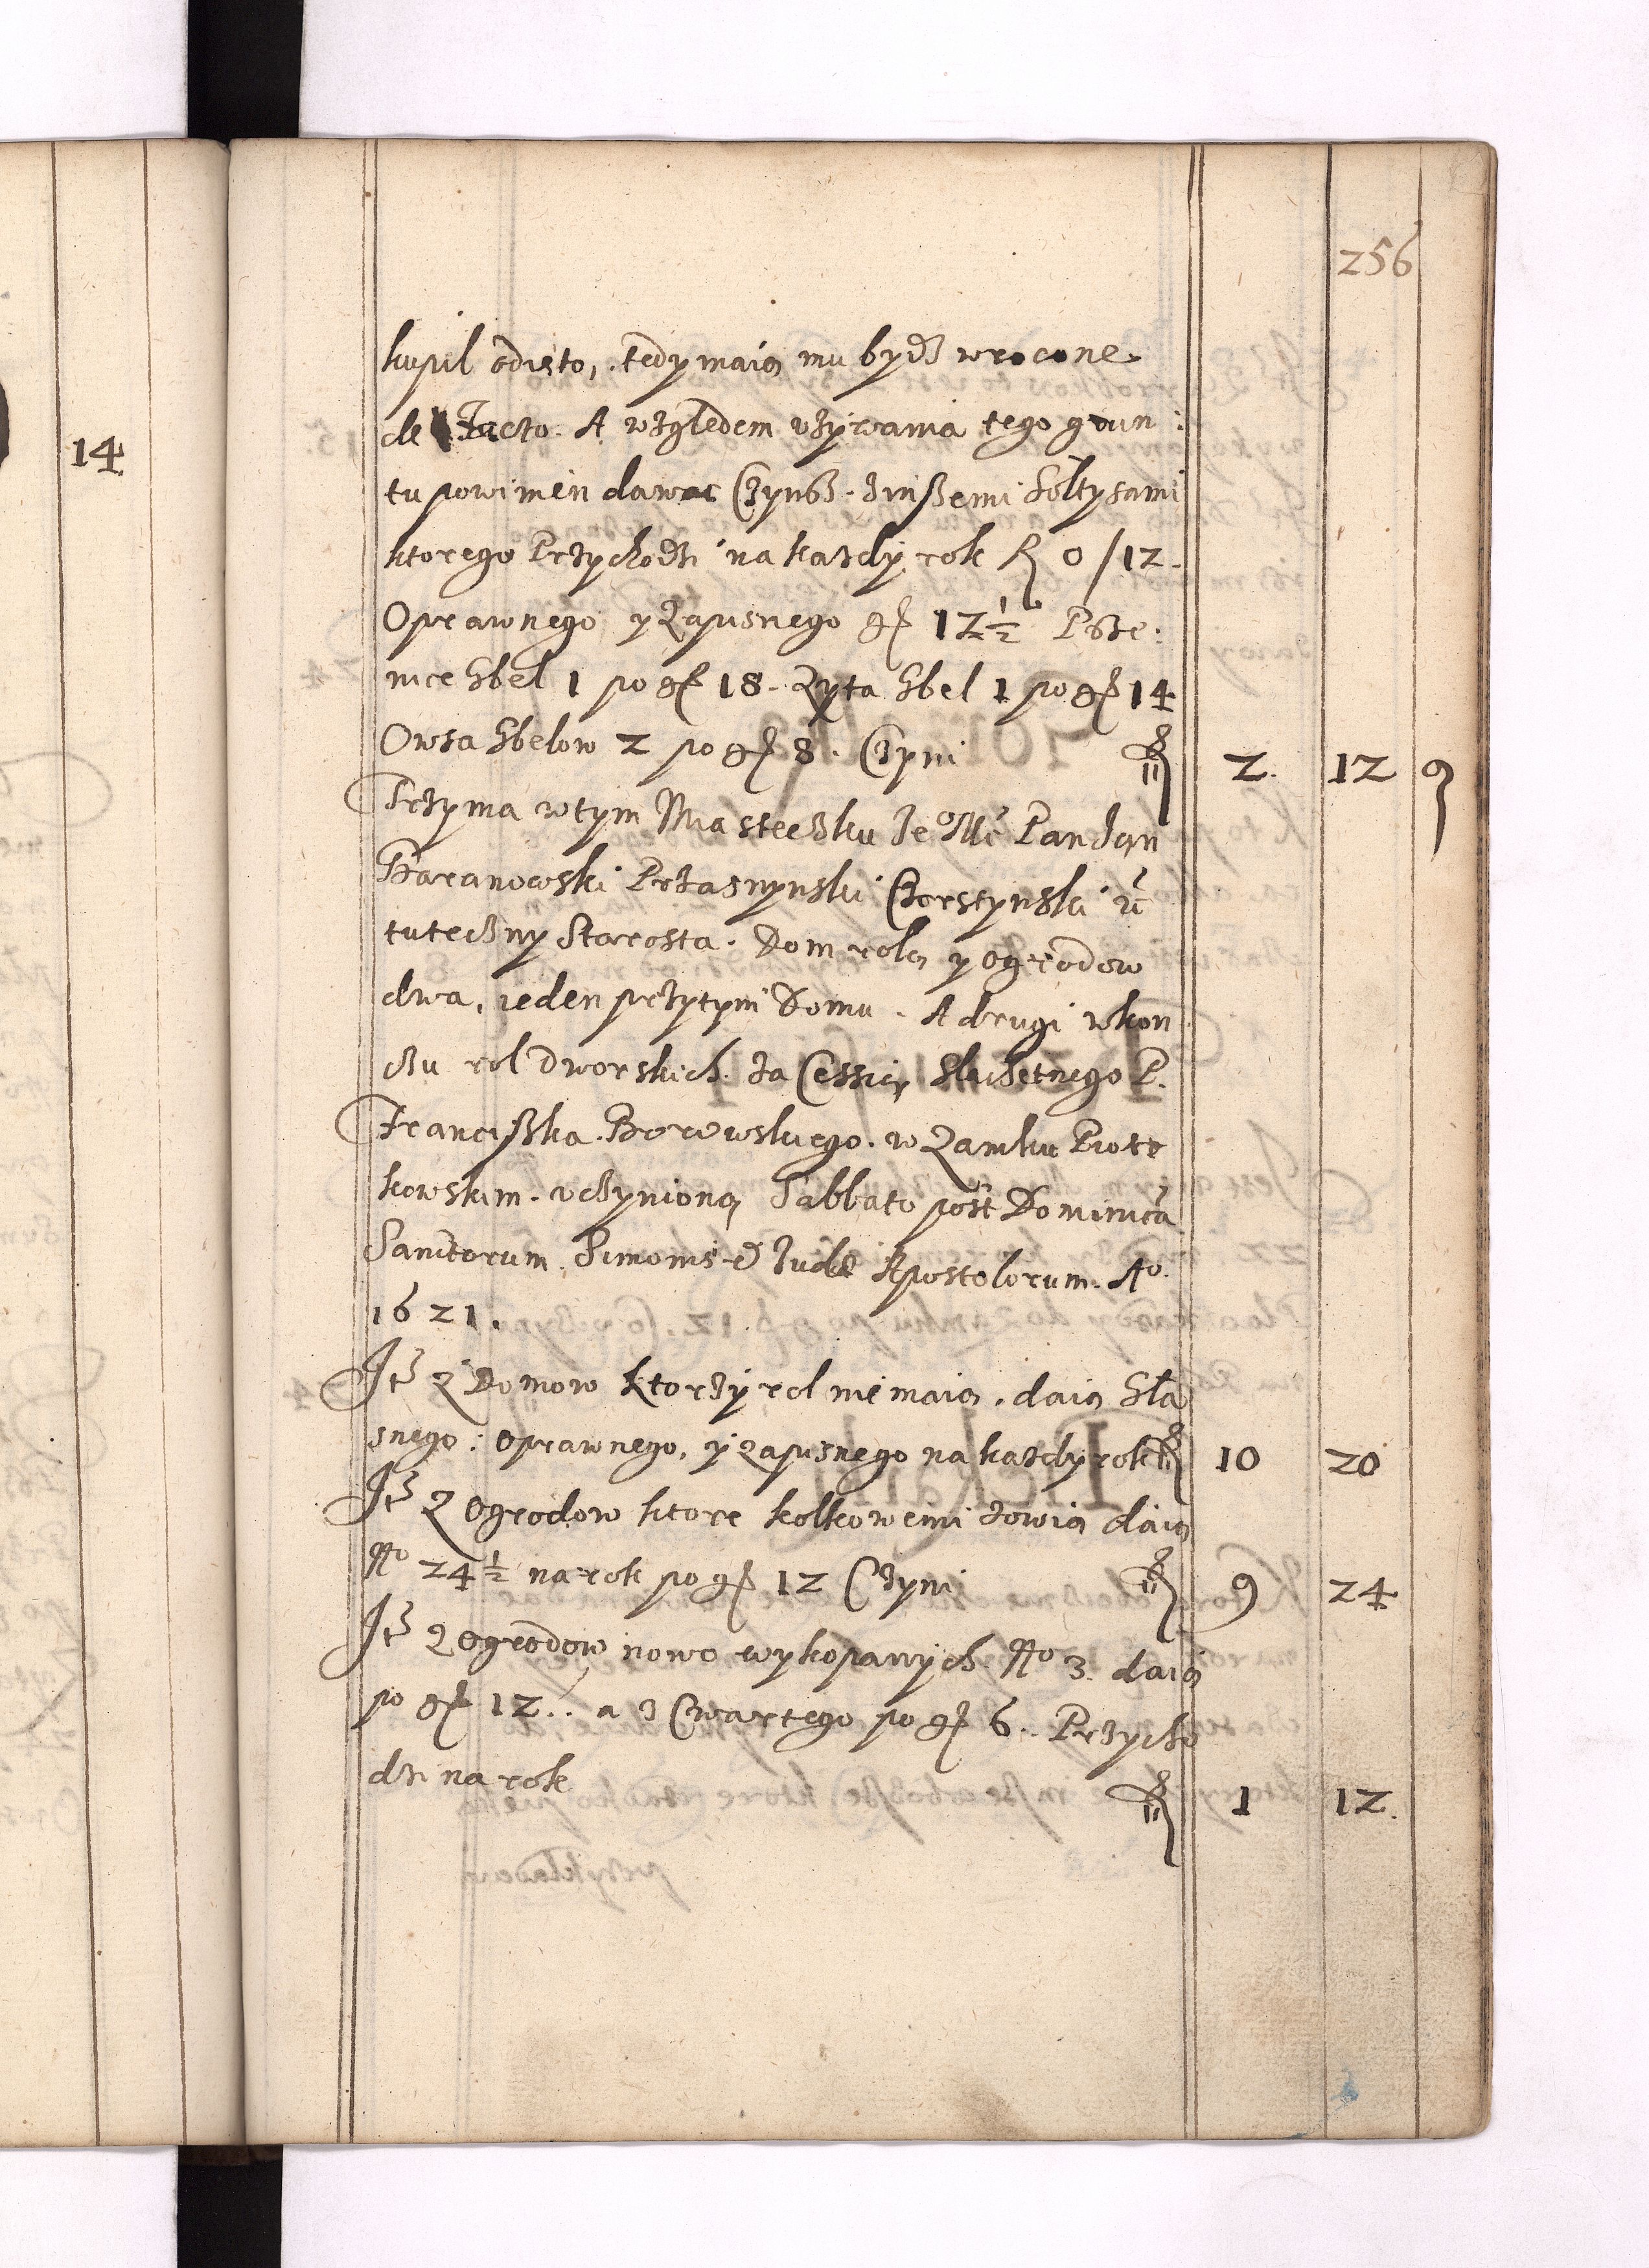 256
kupil odisto, tedy maią mu bydź wrocone
de facto. A wzgledem vżywania tego grun:
tu powinien dawac Czynsz zinszemi Soltysami
ktorego Przychodzi na kazdy rok fl 0/12
Oprawnego y Zapusnego gr 12½ Psze:
nice Hbel 1 po gr 18. Zyta Hbel 1 po gr 14
Owsa Hbelow 2 po gr 8. Czyni fl 2. 12 9
Trzyma wtym Miasteczku Je Mć Pan Jan
Baranowski Przasnynski Czorstynski ŕ
tuteczny Starosta. Dom rolą y ogrodow
dwa, ieden przytym Domu. A drugi wkon
czu rol Dworskich. za Cessią Slachetnego P.
Franciszka Borowskiego. w Zamku Piotr
kowskim. vczynioną Sabbato post Dominicā
Sanctorum Simonis et Judæ Apostolorum. Ao
1621.
Itē z Domow ktorzy rol niemaią. daią Sta
snego: oprawnego, y zapusnego na kazdy rok fl 10 20
Itē Z Ogrodow ktore kolkowemi zowią daią
No 24½ na rok po gr 12 Czyni fl 9 24
Itē z ogrodow nowo wykopanych No 3. daią
po gr 12. a z Czwartego po gr 6. Przycho
dzi na rok fl 1 12.
14